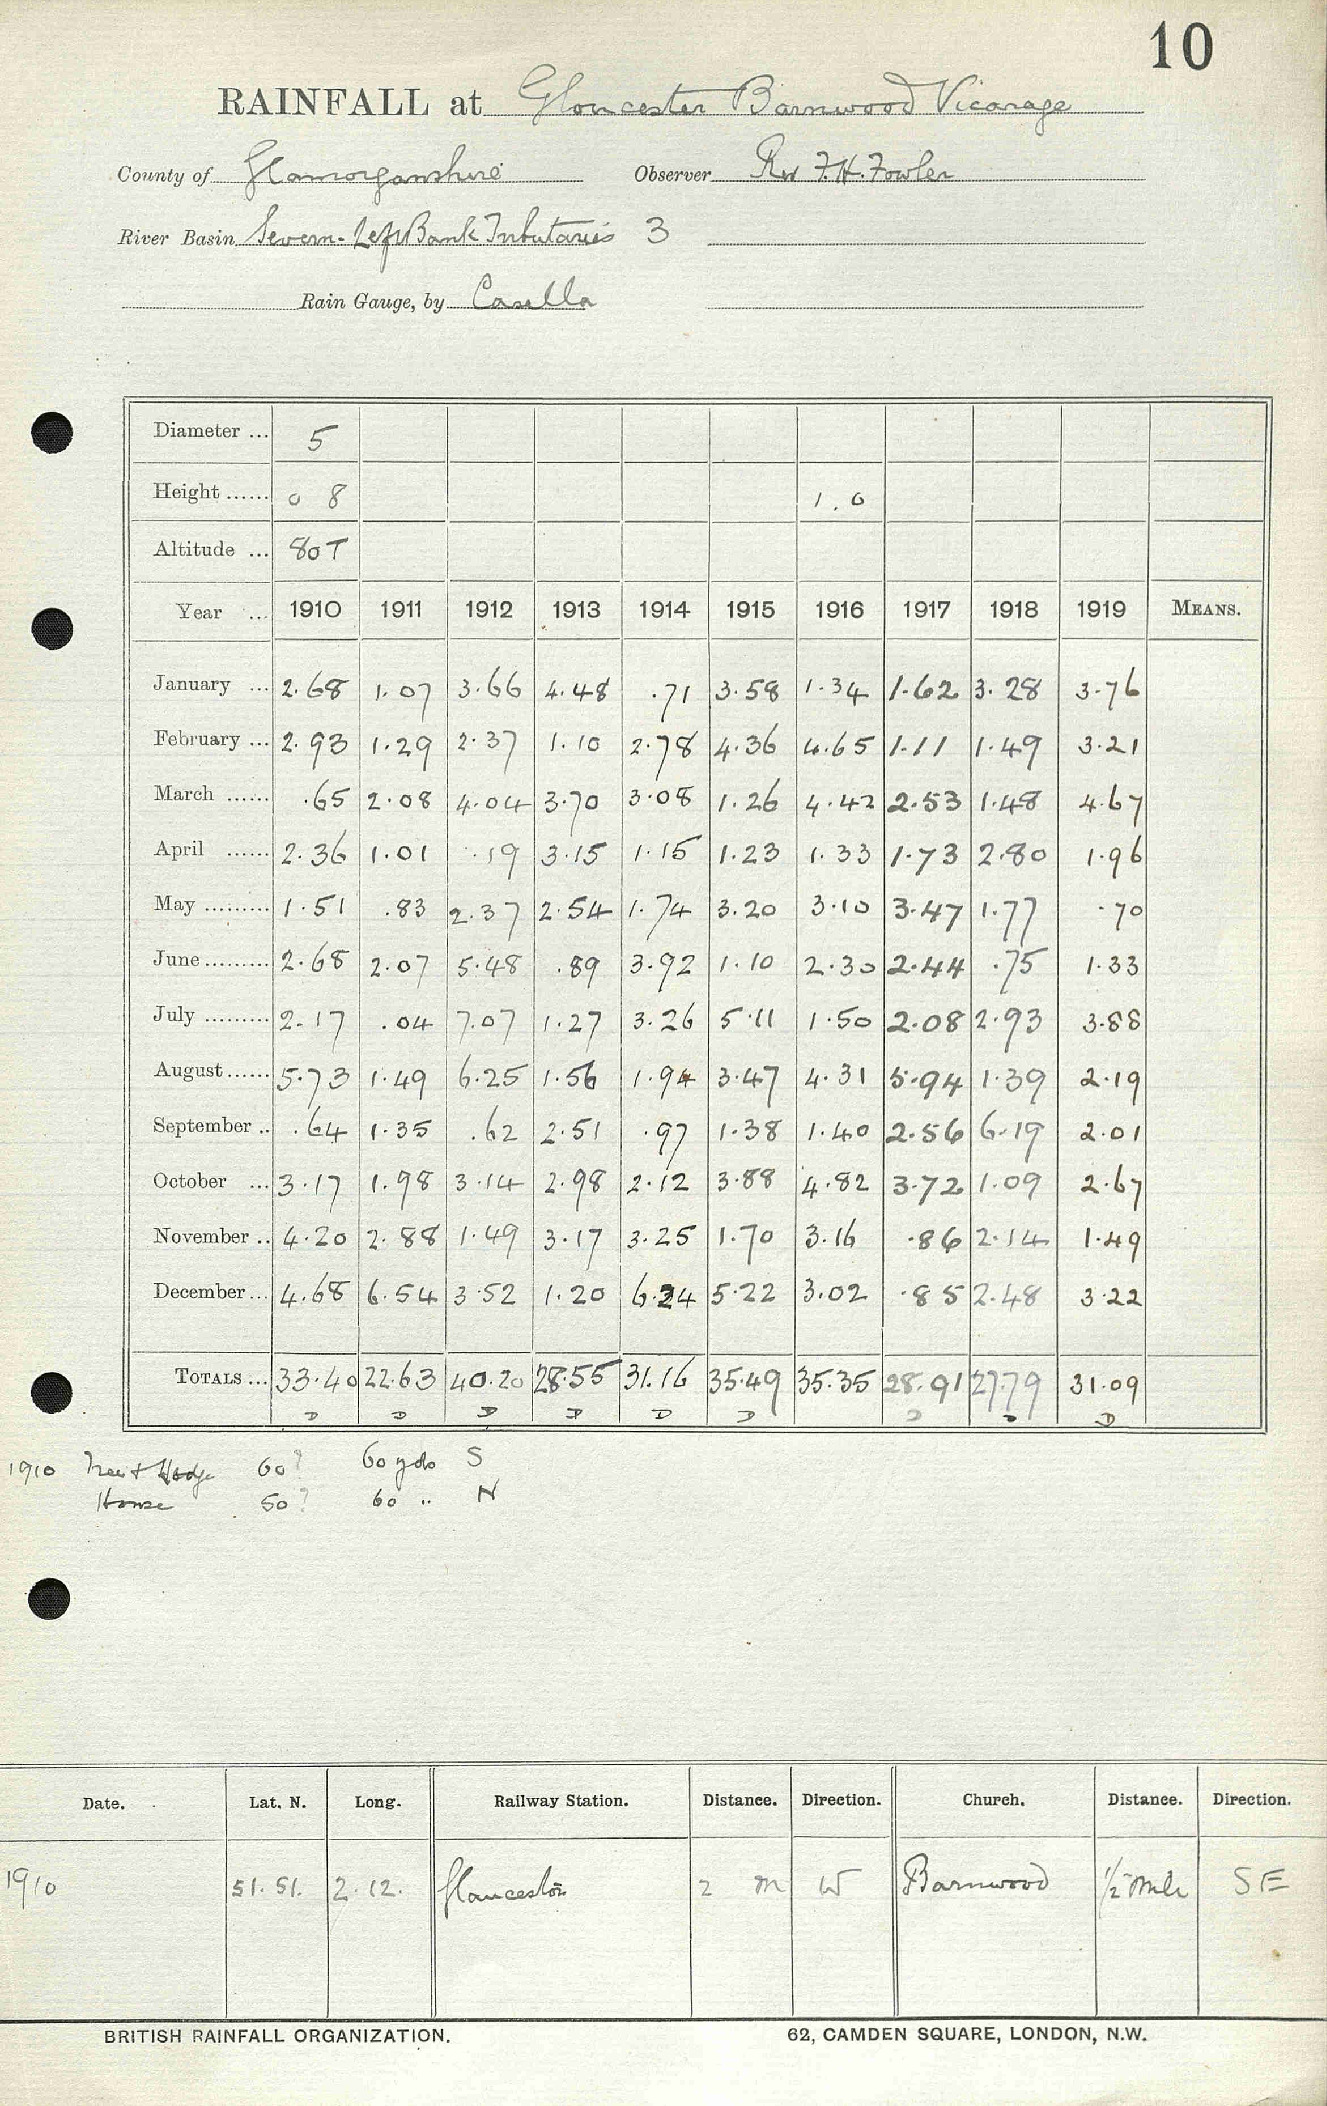 10
RAINFALL at Gloucester Barnwood Vicarage
County of Glamorganshire Observer Rev F.H. Fowler
River Basin Severn - Left Bank Tributaries 3
Rain Gauge, by Casella
Diameter ... 5
Height ...... 0 8 1.0
Altitude ... 80T
Year ... 1910 1911 1912 1913 1914 1915 1916 1917 1918 1919 MEANS.
January ... 2.68 1.07 3.66 4.48 .71 3.58 1.34 1.62 3.28 3.76
February ... 2.93 1.29 2.37 1.10 2.78 4.36 4.65 1.11 1.49 3.21
March ...... .65 2.08 4.04 3.70 3.08 1.26 4.42 2.53 1.48 4.67
April ...... 2.36 1.01 .19 3.15 1.15 1.23 1.33 1.73 2.80 1.96
May ......... 1.51 .83 2.37 2.54 1.74 3.20 3.10 3.47 1.77 .70
June ......... 2.68 2.07 5.48 .89 3.92 1.10 2.30 2.44 .75 1.33
July ......... 2.17 .04 7.07 1.27 3.26 5.11 1.50 2.08 2.93 3.88
August ...... 5.73 1.49 6.25 1.56 1.94 3.47 4.31 5.94 1.39 2.19
September .. .64 1.35 .62 2.51 .97 1.38 1.40 2.56 6.19 2.01
October ... 3.17 1.98 3.14 2.98 2.12 3.88 4.82 3.72 1.09 2.67
November .. 4.20 2.88 1.49 3.17 3.25 1.70 3.16 .86 2.14 1.49
December ... 4.68 6.54 3.52 1.20 6.24 5.22 3.02 .85 2.48 3.22
TOTALS ... 33.40 22.63 40.20 28.55 31.16 35.49 35.35 28.91 27.79 31.09
D D D D D D D D D
1910 Tree & Hedge 60? 60 yds S
House 50? 60 " N
Date. Lat. N. Long. Railway Station. Distance. Direction. Church. Distance. Direction.
1910 51.51. 2.12. Gloucester 2 m W Barnwood 1/2 mile SE
BRITISH RAINFALL ORGANIZATION. 62, CAMDEN SQUARE, LONDON, N.W.